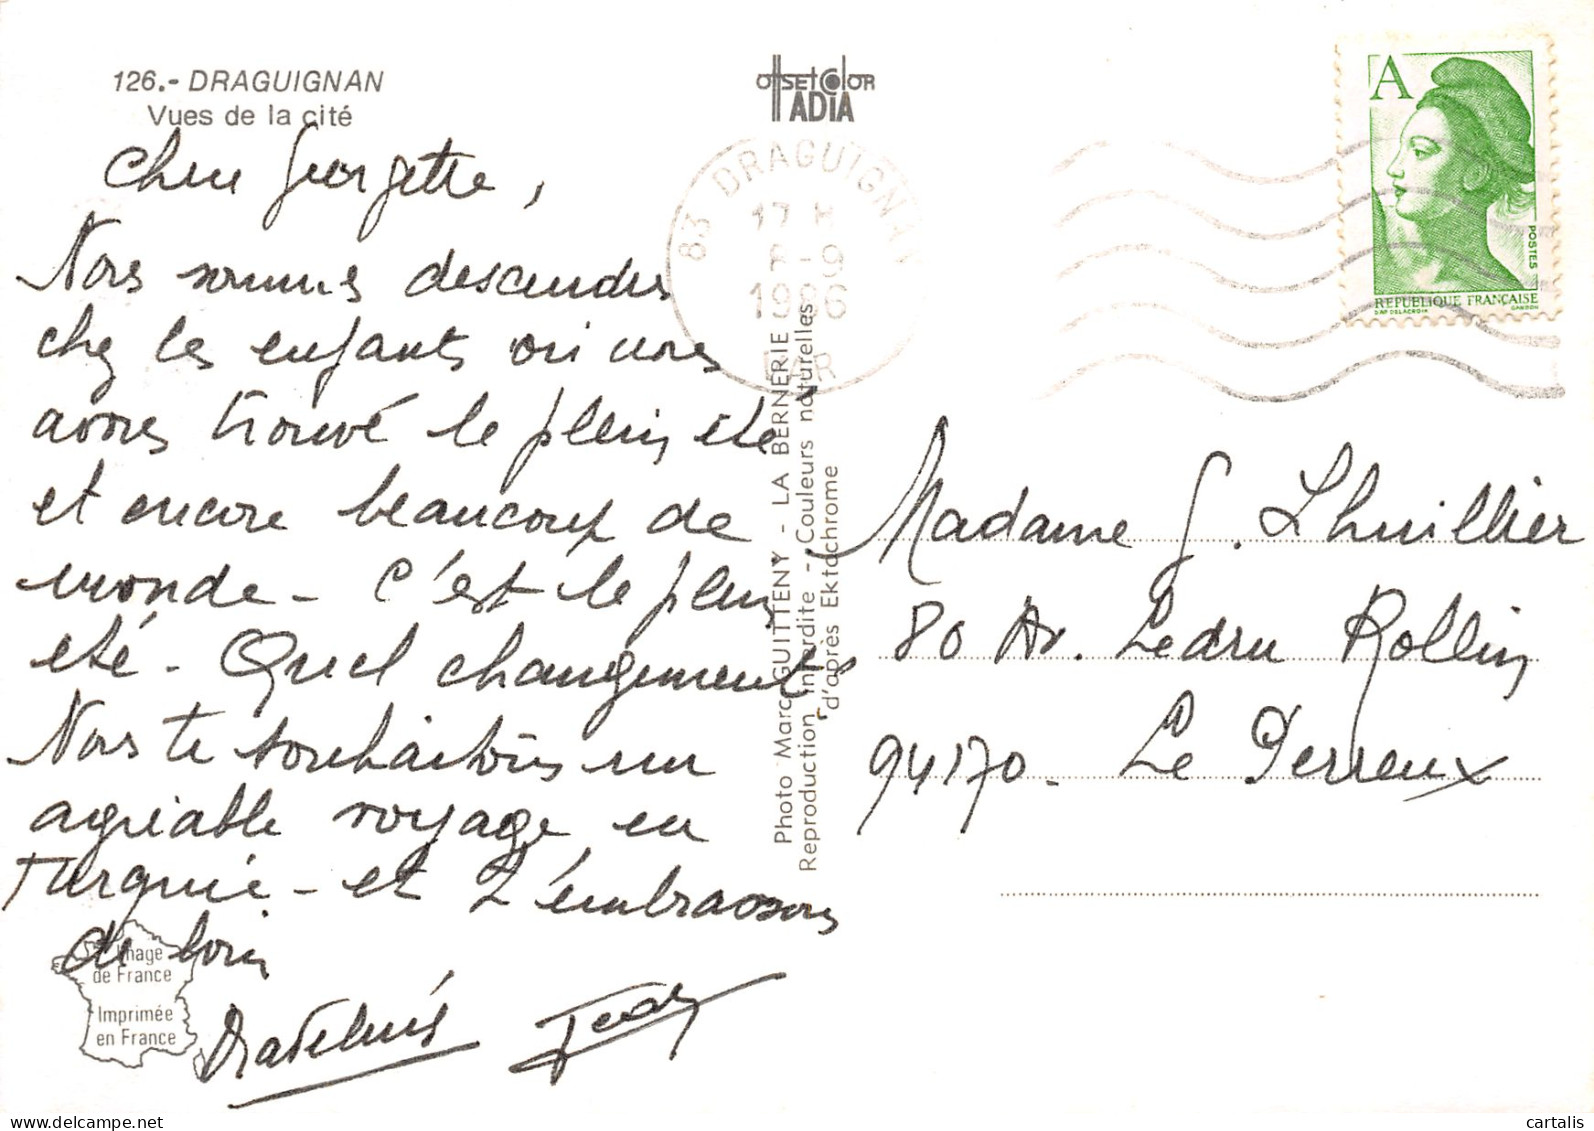 126.- DRAGUIGNAN
Vues de la cité
Chère Georgette,
Nous sommes descendus
chez les enfants où nous
avons trouvé le plein été
et encore beaucoup de
monde - C'est le plein
été - Quel changement
Nous te souhaitons un
agréable voyage en
Turquie - et t'embrassons
de loin
OffSETCOlOR
ADIA
83 DRAGUIGNAN
17 H
-9
1986
VAR
A
POSTES
REPUBLIQUE FRANÇAISE
D'AP. DELACROIX GANDON
Photo Marc GUITTENY - LA BERNERIE
Reproduction interdite - Couleurs naturelles
d'après Ektachrome
Madame G. Lhuillier
80 Av. Ledru Rollin
94170 - Le Perreux
Image
de France
Imprimée
en France
www.delcampe.net
cartalis